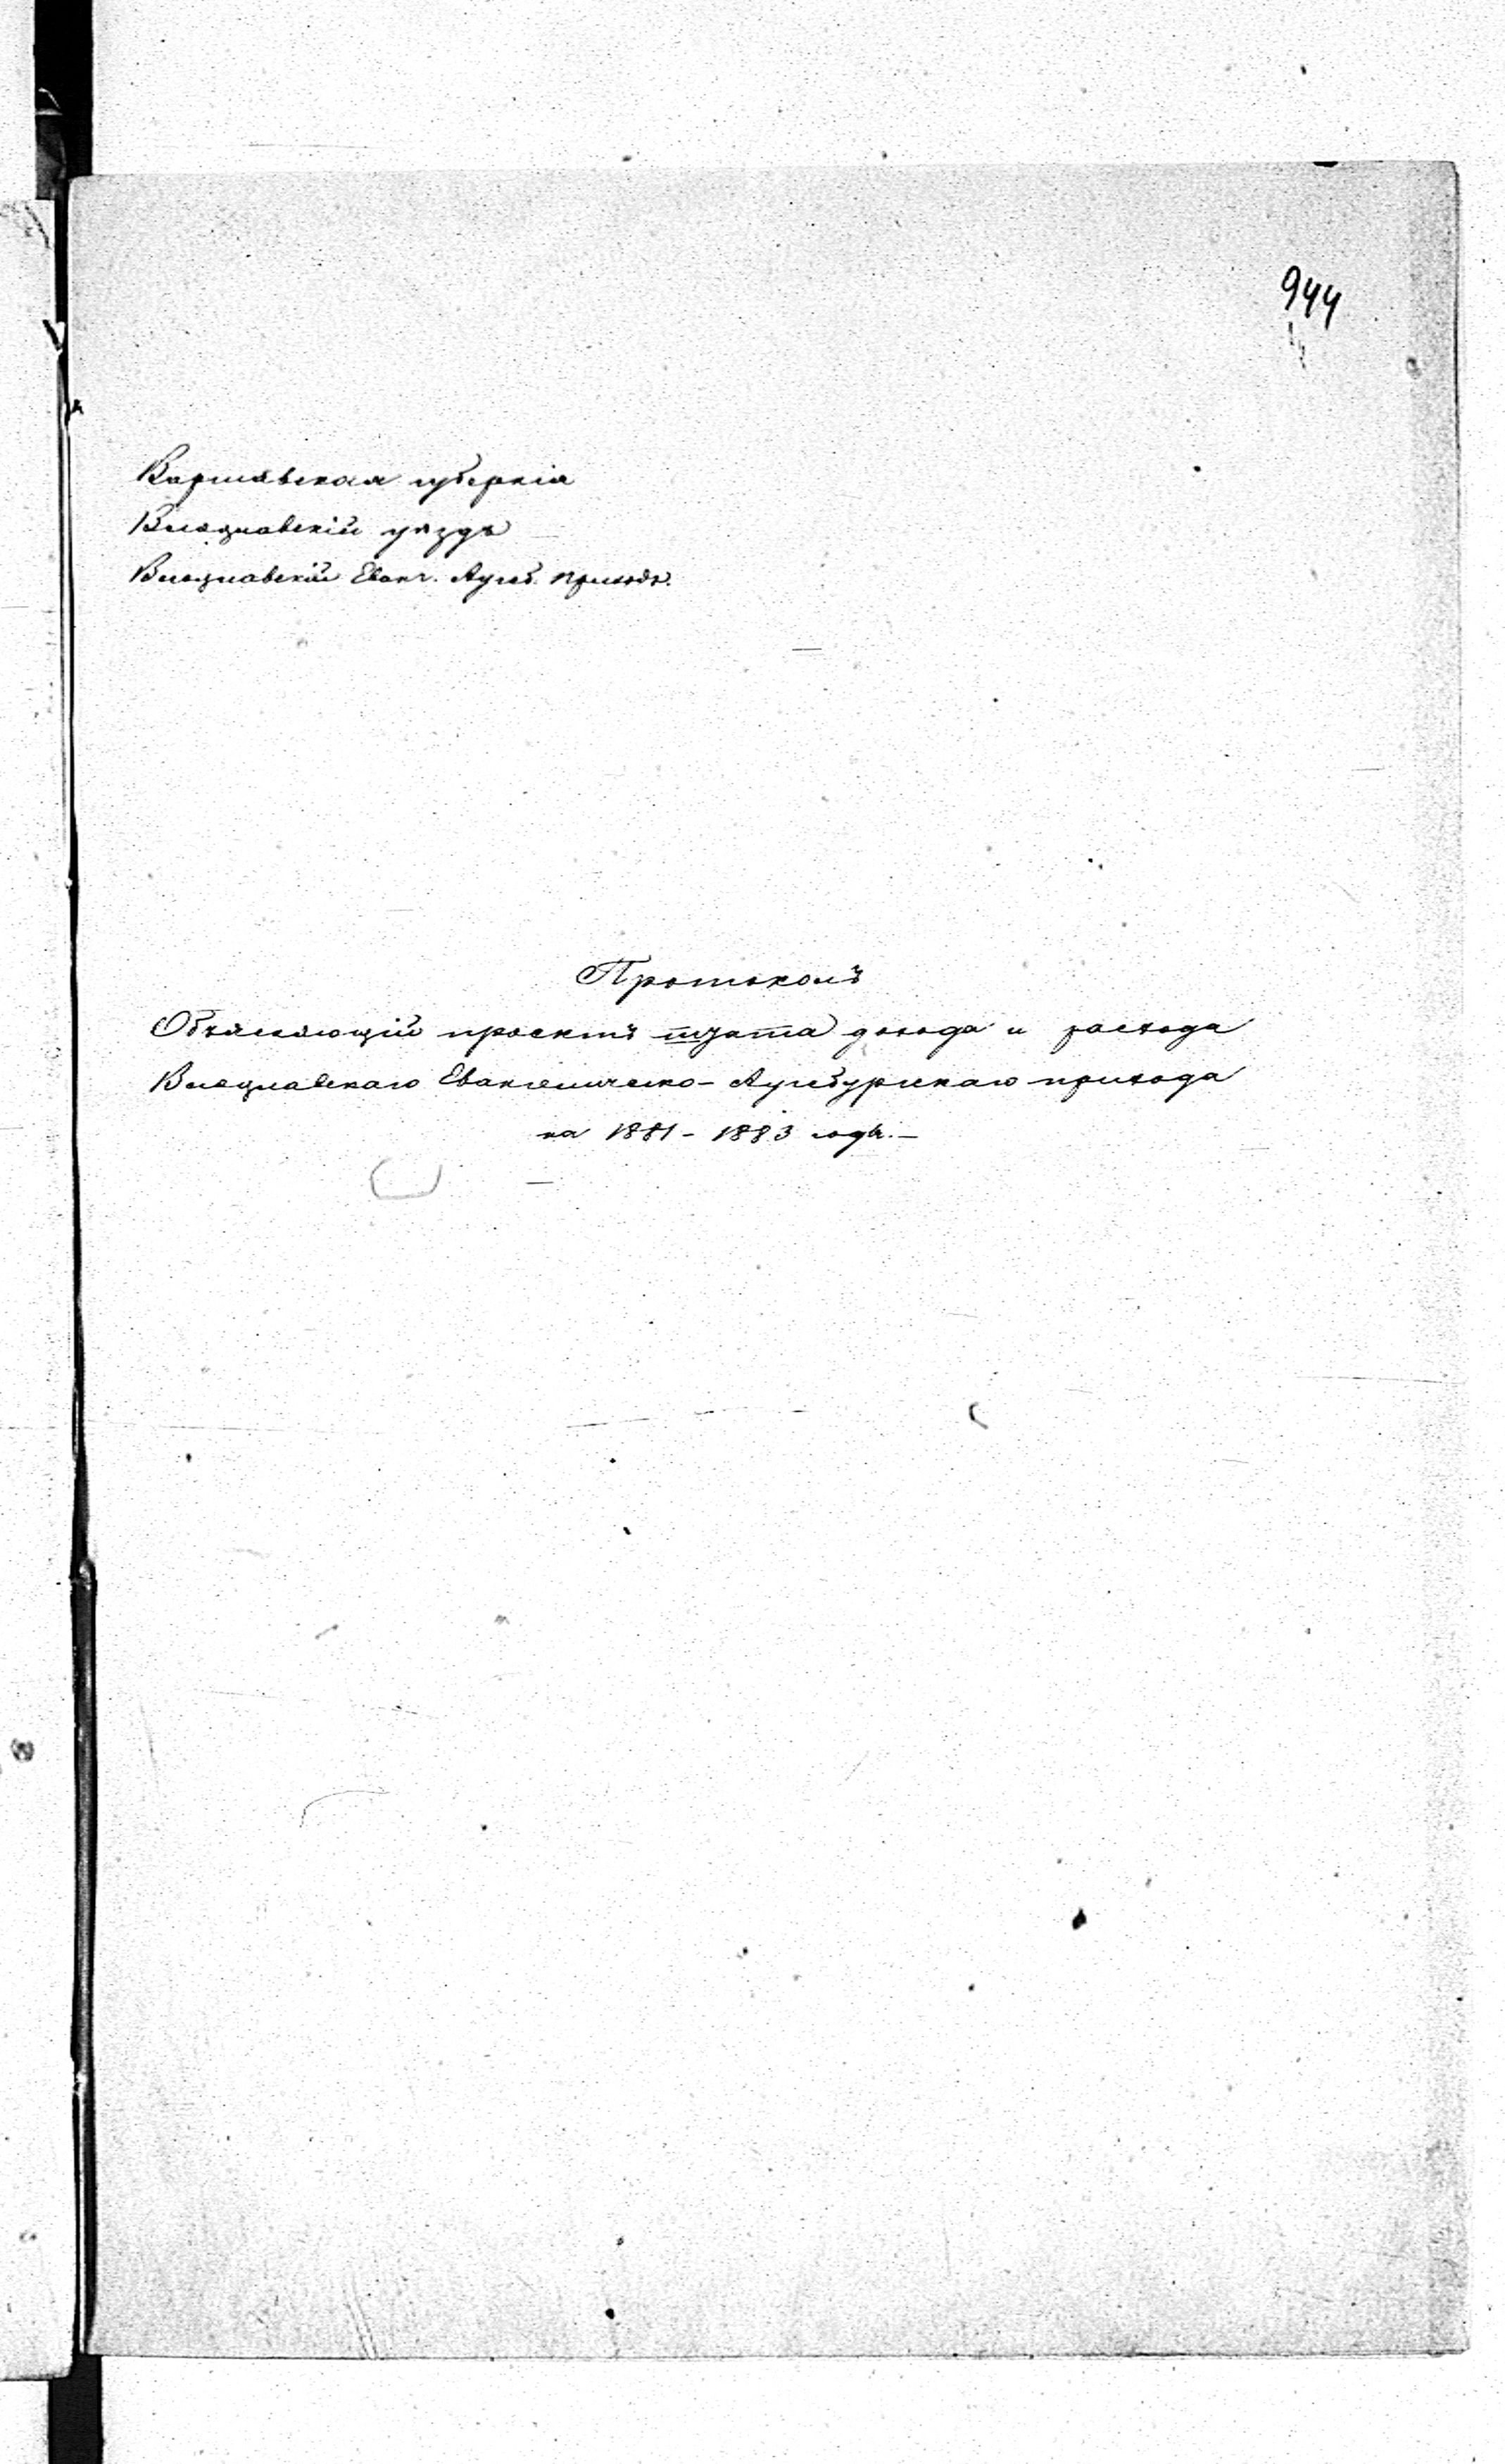 944
Варшавская губернія
Влоцлавскій уѣздъ
Влоцлавскій Еванг. Аугсб. приходъ.
Протоколъ
Объясняющій проектъ штата дохода и расхода
Влоцлавскаго Евангелическо-Аугсбургскаго прихода
на 1881 - 1883 годы.-